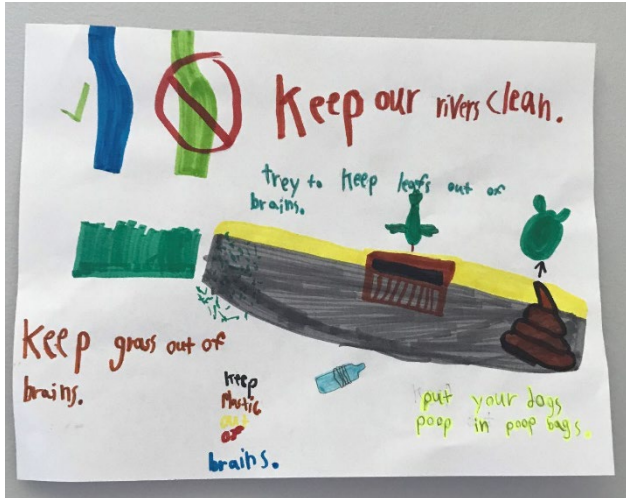 Keep our rivers clean.
trey to keep leafs out of
brains.
Keep grass out of
brains.
keep
Plastic
out
of
brains.
put your dogs
poop in poop bags.